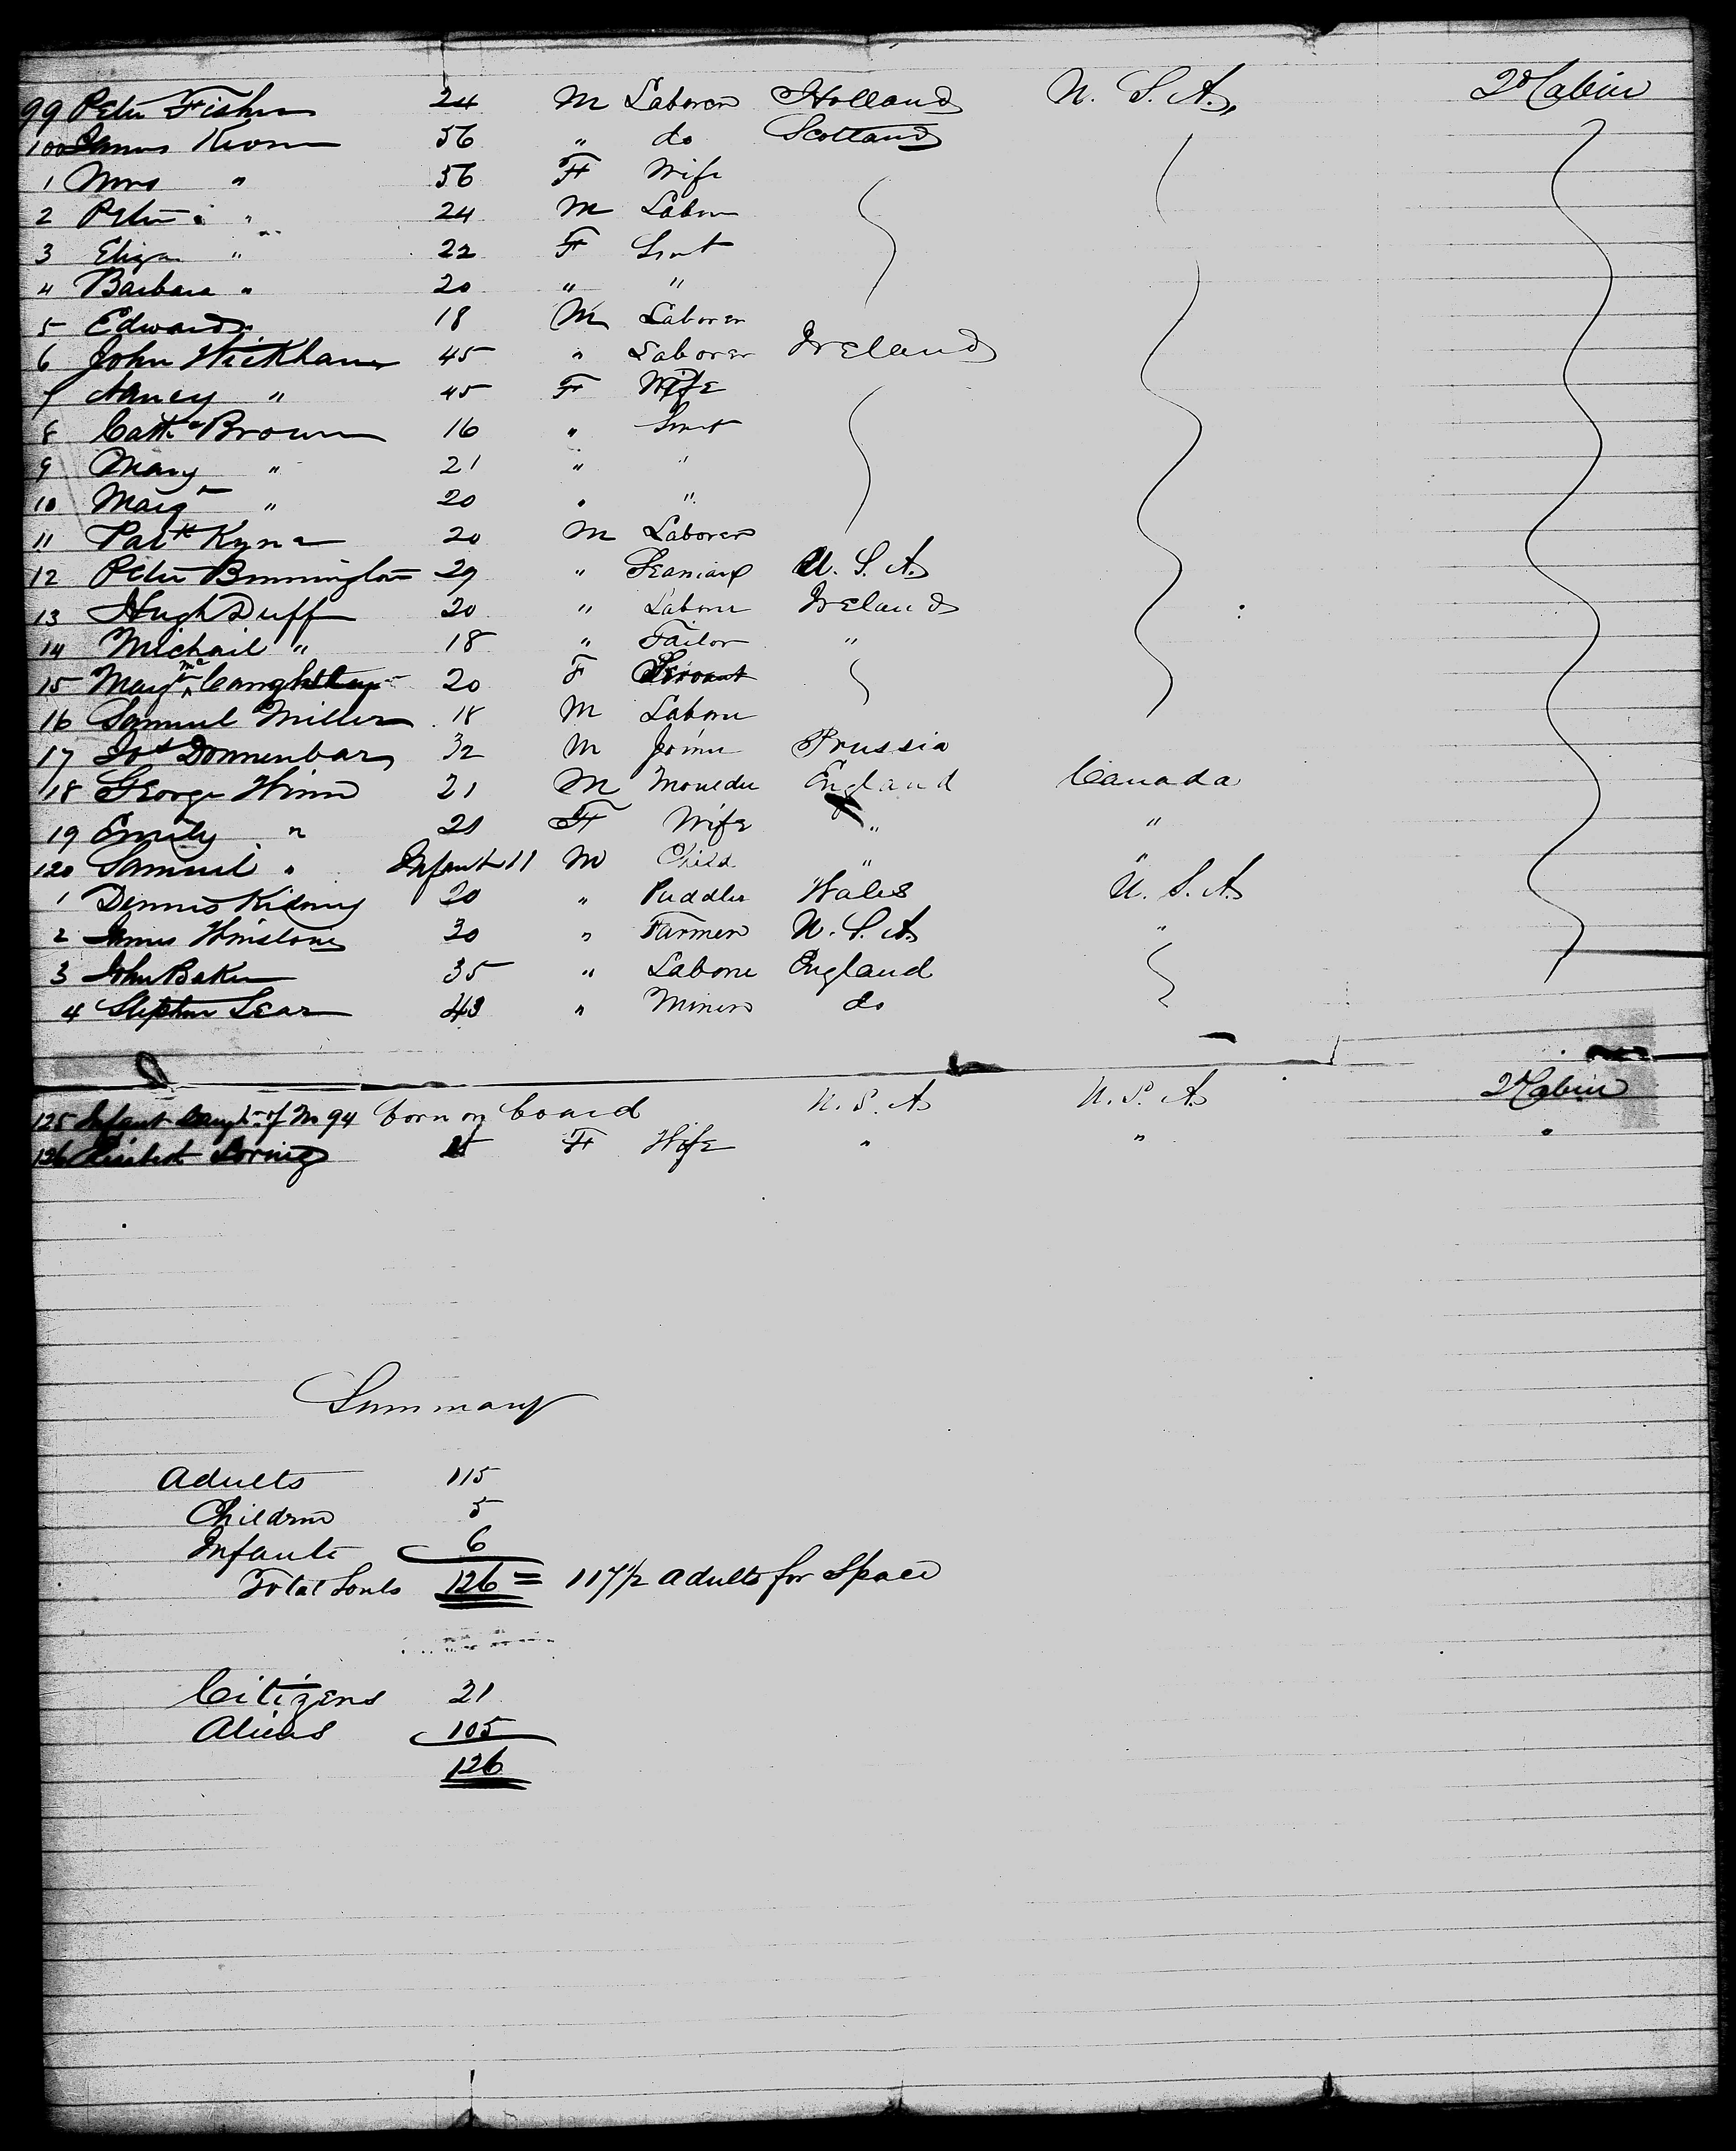 99 Peter Fisher 24 M Laborer Holland U. S. A. 2d Cabin
100 James 56 " do Scotland
1 Mrs " 56 F Wife
2 Peter " 24 M Labor
3 Eliza " 22 F Servt
4 Barbara " 20 " "
5 Edward " 18 M Laborer
6 John Wickham 45 " Laborer Ireland
7 Nancy " 45 F Wife
8 Cathe Brown 16 " Servt
9 Mary " 21 " "
10 Margt " 20 " "
11 Patk Kyne 20 M Laborer
12 Peter Bonnington 29 " U. S. A.
13 Hugh Duff 20 " Laborer Ireland
14 Michail " 18 " Tailor "
15 Margt Mc 20 F Servant
16 Samuel Miller 18 M Laborer
17 Jos Donnenbar 32 M Joiner Prussia
118 George Winn 21 M Moulder England Canada
19 Emily " 21 F Wife " "
120 Samuel " Infant 11 M Child " "
1 Dennis 20 " Puddler Wales U. S. A.
2 James Winstone 30 " Farmer U. S. A. "
3 John Baker 35 " Laborer England
4 Stephen Lear 43 " Miner do
125 Infant Daughr of No 94 born on board U. S. A. U. S. A. 2d Cabin
126 F Wife " " "
Summary
Adults 115
Children 5
Infants 6
Total Souls 126 = 117 1/2 adults for Space
Citizens 21
Aliens 105
126